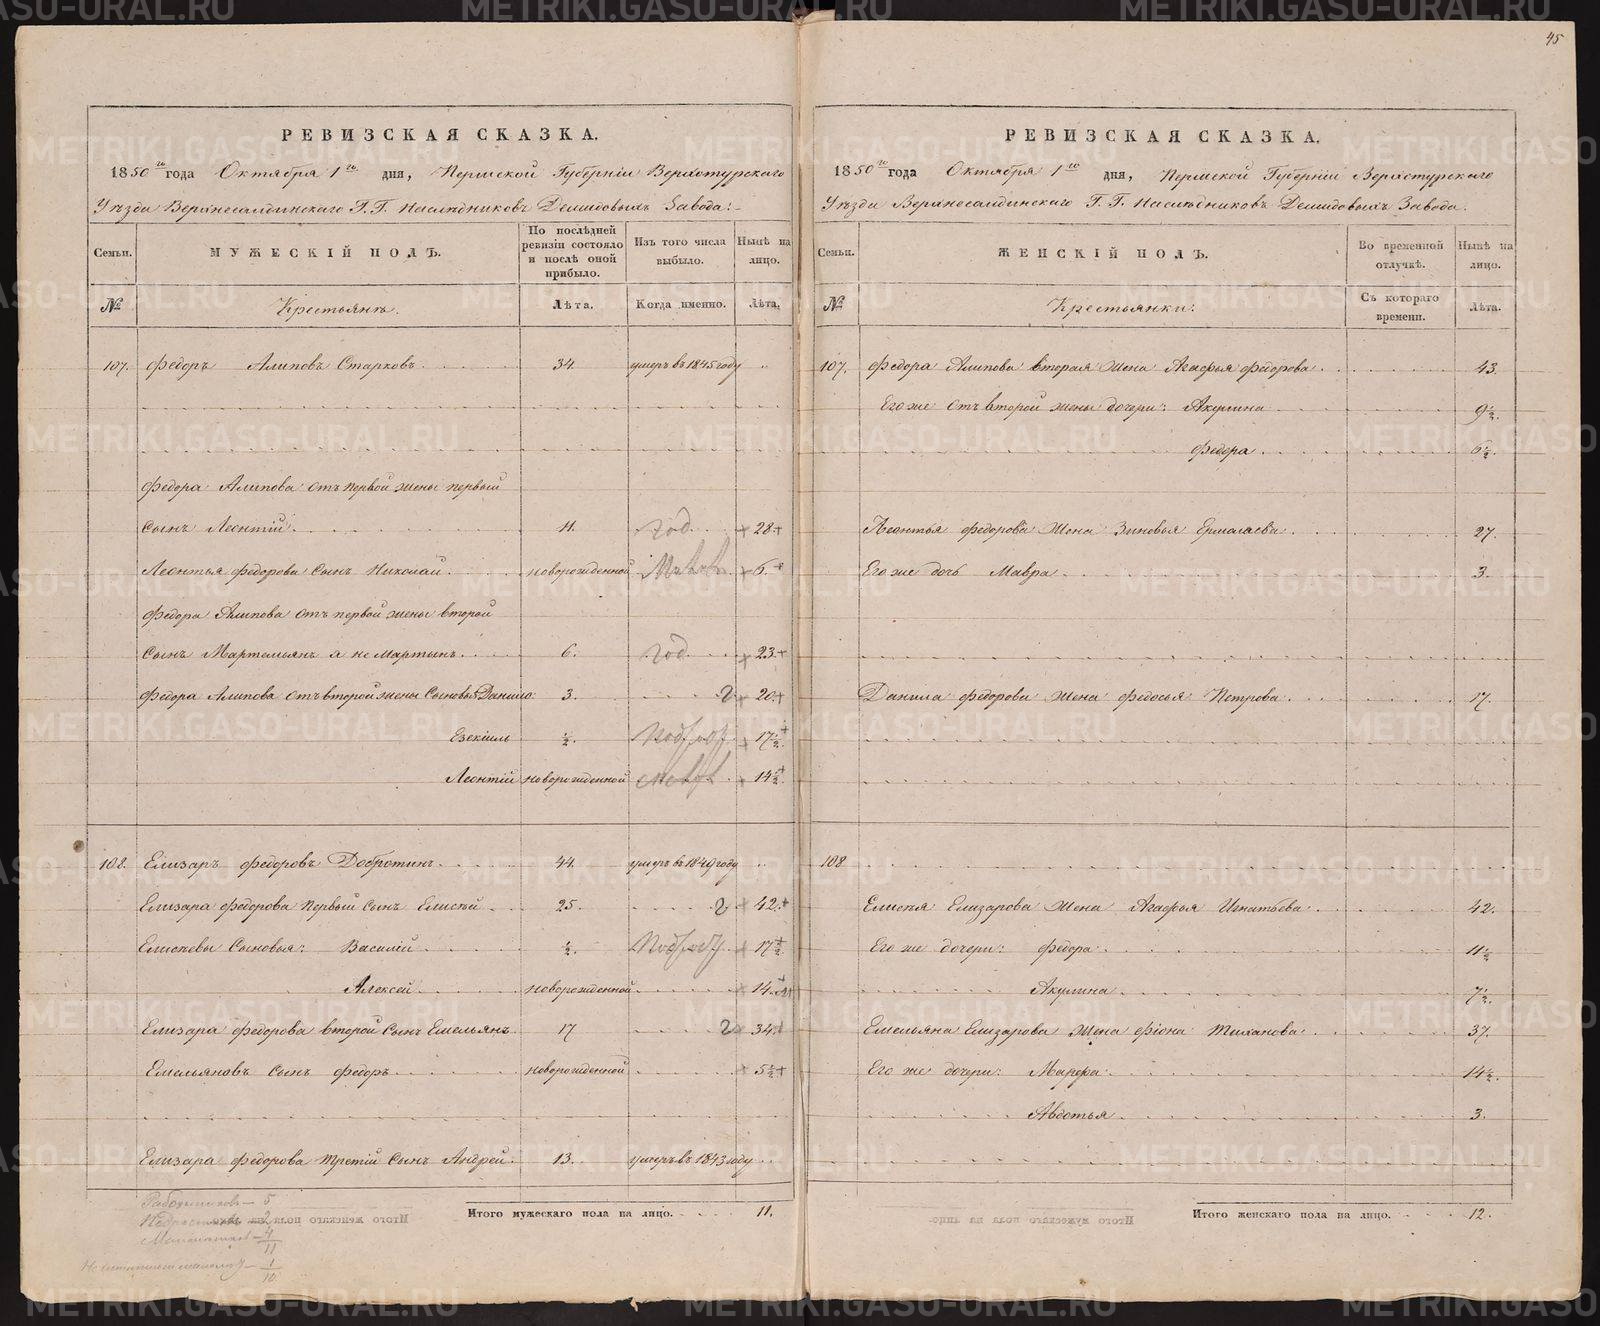 45
РЕВИЗСКАЯ СКАЗКА.
1850го года Октября 1го дня, Пермской Губернiи Верхотурскаго
Уѣзда Верхнесалдинскаго Г. Г. Наслѣдниковъ Демидовыхъ Завода:
Семьи.
МУЖЕСКIЙ ПОЛЪ.
По послѣдней ревизiи состояло и послѣ оной прибыло.
Изъ того числа выбыло.
Нынѣ на лицо.
№
Крестьянъ.
Лѣта.
Когда именно.
Лѣта.
107. Федоръ Алиповъ Старковъ 34. умеръ въ 1845 году
Федора Алипова отъ первой жены первый
сынъ Леонтiй. 11. год + 28 +
Леонтья Федорова сынъ Николай новорожденной + 6. +
Федора Алипова отъ первой жены второй
сынъ Мартемьянъ а не Мартынъ 6. год + 23 +
Федора Алипова отъ второй жены сыновья: Данило 3. + 20 +
Езекiиль ½. + 17½ +
Леонтiй новорожденной + 14½ +
108. Елизаръ Федоровъ Добротинъ 44. умеръ въ 1849 году
Елизара Федорова первый сынъ Елисѣй 25. + 42 +
Елисѣевы сыновья: Василiй ½. + 17½ +
Алексей новорожденной + 14. +
Елизара Федорова второй сынъ Емельянъ 17 34 +
Емельяновъ сынъ Федоръ новорожденной + 5½ +
Елизара Федорова третiй сынъ Андрей 13. умеръ въ 1843 году
Итого мужескаго пола на лицо. 11.
Работниковъ — 5
4
11
1
10
РЕВИЗСКАЯ СКАЗКА.
1850го года Октября 1го дня, Пермской Губернiи Верхотурскаго
Уѣзда Верхнесалдинскаго Г. Г. Наслѣдниковъ Демидовыхъ Завода.
Семьи.
ЖЕНСКIЙ ПОЛЪ.
Во временной отлучкѣ.
Нынѣ на лицо.
№
Крестьянки:
Съ котораго времени.
Лѣта.
107. Федора Алипова вторая жена Агафья Федорова 43.
Его же отъ второй жены дочери: Акулина 9½.
Федора 6½.
Леонтья Федорова жена Зиновья Ермолаева 27.
Его же дочь Мавра 3.
Данила Федорова жена Федосья Петрова 17.
108
Елисѣя Елизарова жена Агафья Игнатьева 42.
Его же дочери: Федора 11½
Акулина 7½.
Емельяна Елизарова жена Фiона Тиханова 37.
Его же дочери: Марфа 14½.
Авдотья 3.
Итого женскаго пола на лицо. 12.
METRIKI.GASO-URAL.RU